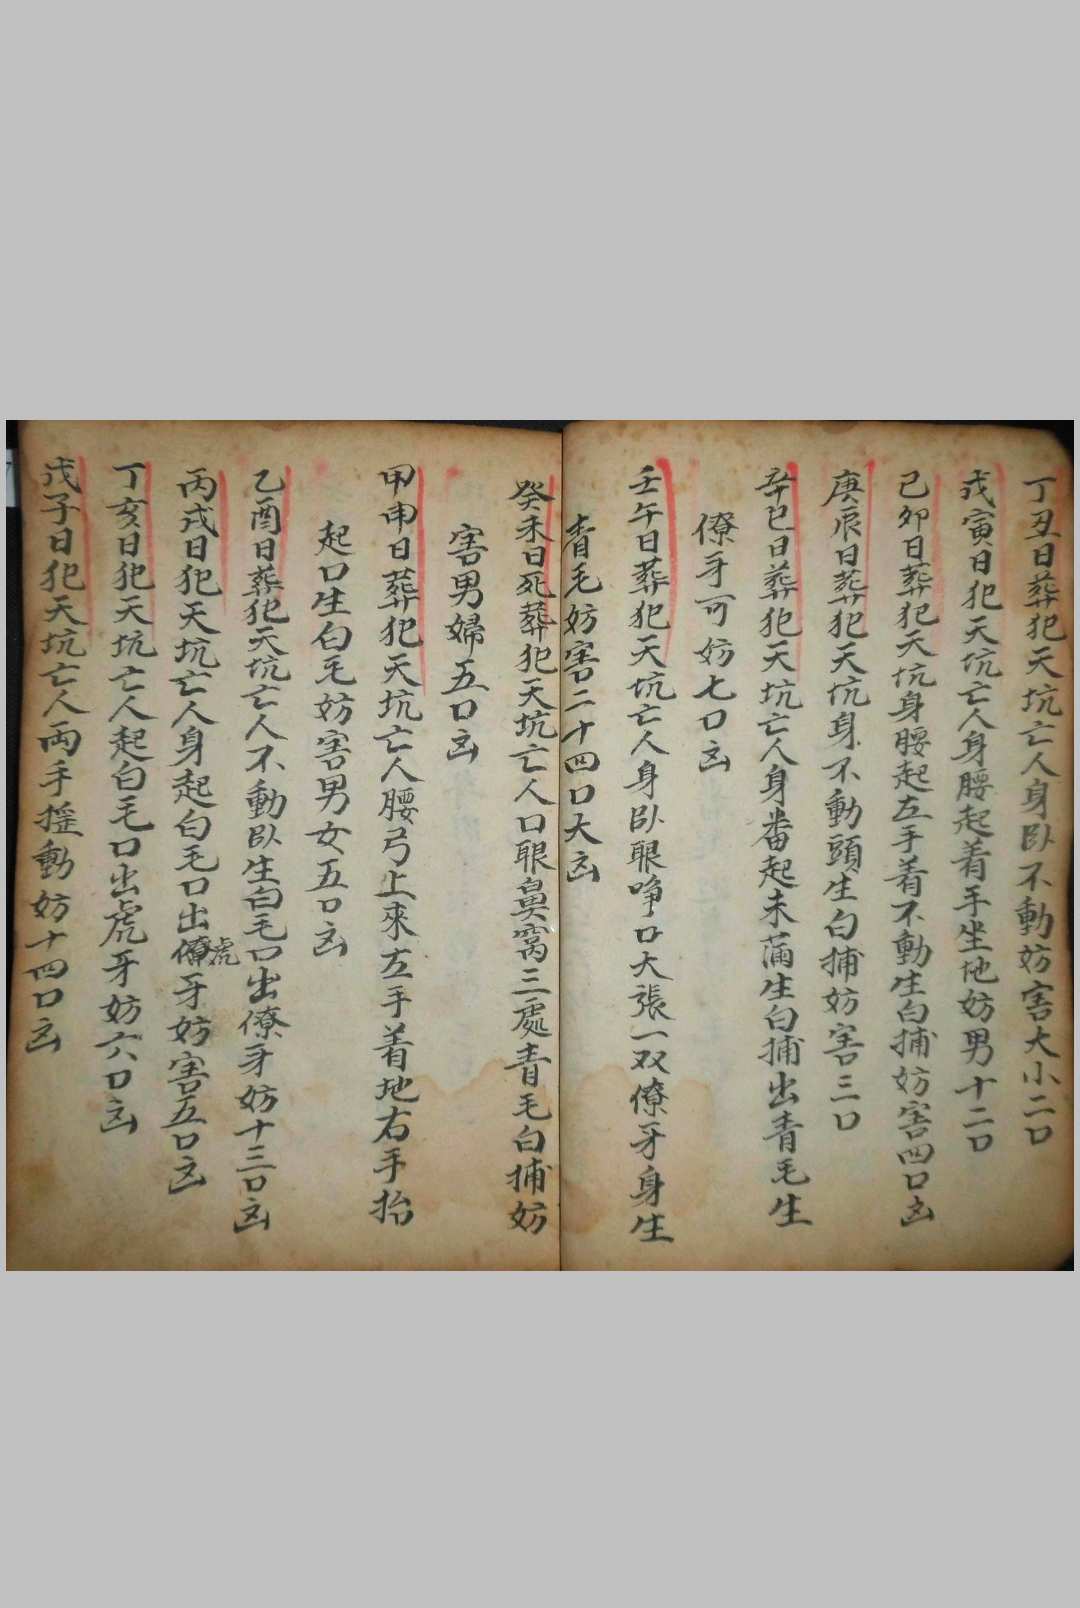 丁丑日葬犯天坑亡人身卧不動妨害大小二口
戊寅日犯天坑亡人身腰起着手坐地妨男十二口
己卯日葬犯天坑身腰起左手着不動生白捕妨害四口凶
庚辰日葬犯天坑身不動頭生白捕妨害三口
辛巳日葬犯天坑亡人身番起未蒲生白捕出青毛生
僚牙可妨七口凶
壬午日葬犯天坑亡人身卧眼睁口大張一双僚牙身生
青毛妨害二十四口大凶
癸未日死葬犯天坑亡人口眼鼻窩三處青毛白捕妨
害男婦五口凶
甲申日葬犯天坑亡人腰弓上來左手着地右手抬
起口生白毛妨害男女五口凶
乙酉日葬犯天坑亡人不動卧生白毛口出僚牙妨十三口凶
丙戌日犯天坑亡人身起白毛口出僚虎牙妨害五口凶
丁亥日犯天坑亡人起白毛口出虎牙妨六口凶
戊子日犯天坑亡人両手摇動妨十四口凶